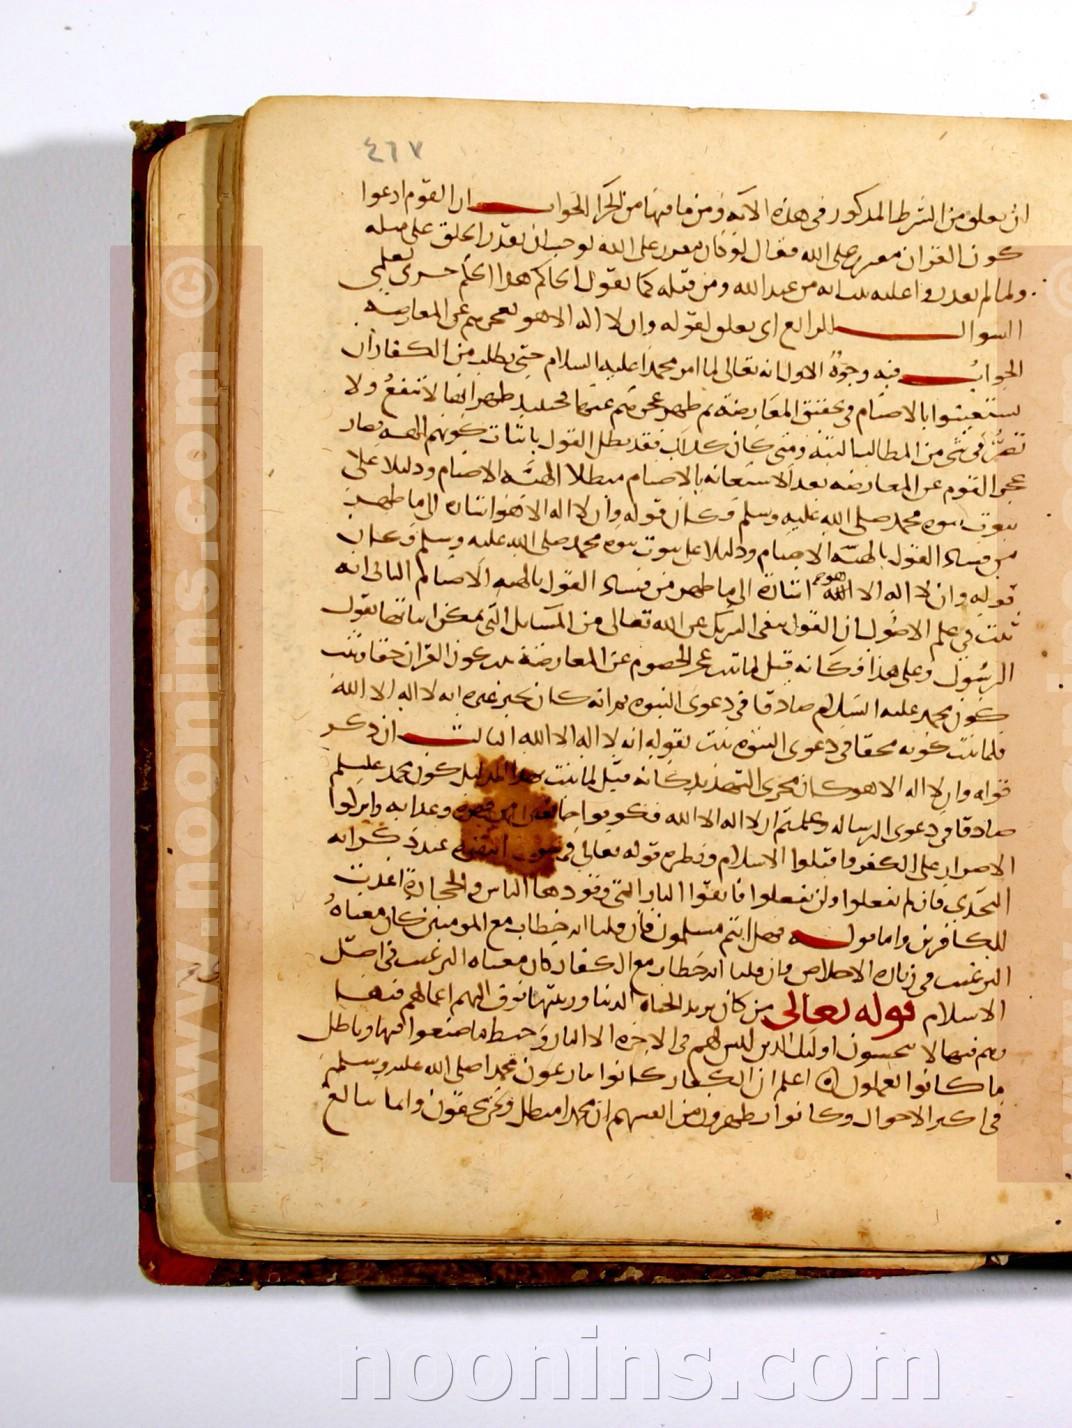 ٤٦٧
ان تعلق من الشرط المذكور فى هذه الآيه ومن ما فيها من ذكر الجواب ان القوم ادعوا
كون القران مفترى على الله فقال لو كان مفترى على الله لوجب ان يقدر الخلق على مثله
ولما لم يقدروا عليه ثبت انه من عند الله ومن قبله كما يقول الحاكم هذا الحكم جرى بعلمى
السوال الرابع اى تعلق لقوله وان لا اله الا هو بعجزهم عن المعارضة
الجواب فيه وجوه الاول انه تعالى لما امر محمدا عليه السلام حتى يطلب من الكفار ان
يستعينوا بالاصنام فى تحقيق المعارضة ثم ظهر عجزهم عنها فحينئذ ظهر انها لا تنفع ولا
تضر فى شى من المطالب البته ومتى كان كذلك فقد بطل القول باثبات كونهم الهه فصار
عجز القوم عن المعارضه بعد الاستعانه بالاصنام مبطلا الهية الاصنام ودليلا على
ثبوت نبوه محمد صلى الله عليه وسلم فكان قوله وان لا اله الا هو اشاره الى ما ظهر
من فساد القول بالهية الاصنام ودليلا على ثبوت نبوه محمد صلى الله عليه وسلم وكان
قوله وان لا اله الا هو اشارة الى ما ظهر من فساد القول بالهيه الاصنام الثانى انه
ثبت فى علم الاصول ان القول بنفى الشريك عن الله تعالى من المسايل التى يمكن اثباتها بقول
الرسول وعلى هذا فكانه قيل لما ثبت عجز الخصوم عن المعارضة ثبت كون القران حقا وثبت
كون محمد عليه السلام صادقا فى دعوى النبوه ثم انه كان يخبر غيره انه لا اله الا الله
فلما ثبت كونه محقا فى دعوى النبوه ثبت بقوله انه لا اله الا الله الثالث ان ذكر
قوله وان لا اله الا هو كان مجرى التهديد كانه قيل لما ثبت هذا الدليل كون محمد عليلسلم
صادقا فى دعوى الرساله وعلمتم ان لا اله الا الله فكونوا خايفين من قهره وعذابه واتركوا
الاصرار على الكفر واقبلوا الاسلام ونظيره قوله تعالى فى سورة البقرة عند ذكر ايه
التحدى فان لم تفعلوا ولن تفعلوا فاتقوا النار التى وقودها الناس والحجارة اعدت
للكافرين واما قوله فهل انتم مسلمون فان قلنا انه خطاب مع المومنين كان معناه
الترغيب فى زيادة الاخلاص وان قلنا انه خطاب مع الكفار كان معناه الترغيب فى اصل
الاسلام قوله تعالى من كان يريد الحياة الدنيا وزينتها نوف اليهم اعمالهم فيها
وهم فيها لا يبخسون اوليك الذين ليس لهم فى الاخره الا النار وحبط ما صنعوا فيها وباطل
ما كانوا يعملون اعلم ان الكفار كانوا ينازعون محمدا صلى الله عليه وسلم
فى اكثر الاحوال وكانوا يظهرون من انفسهم ان محمدا مبطل ونحن محقون وانما نبالغ
www.noonins.com ©
noonins.com